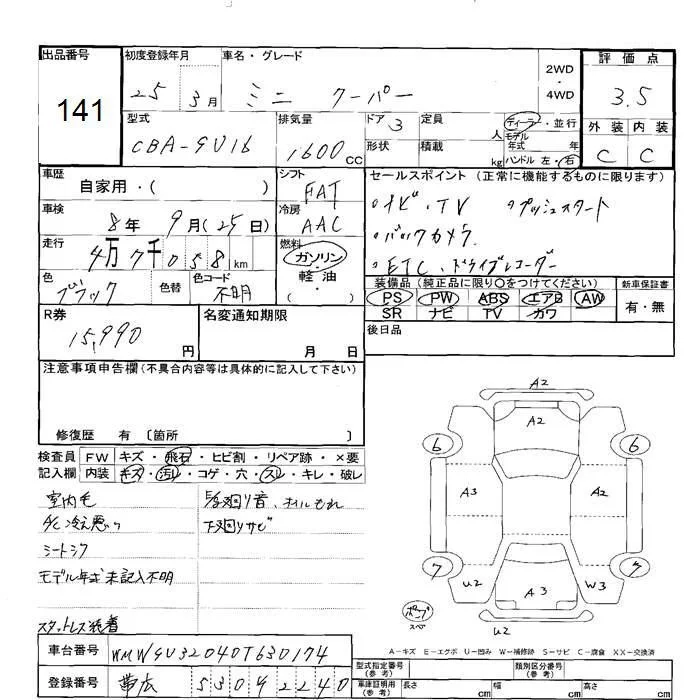 出品番号 初度登録年月 車名・グレード 2WD ・ 4WD 評価点
141 25 3月 ミニ クーパー 3.5
型式 排気量 ドア 3 定員 人 ディーラー・並行 外装 内装
CBA-SU16 1600cc 形状 積載 kg モデル年式 年 ハンドル 左・右 C C
車歴 自家用・( ) シフト FAT セールスポイント (正常に機能するものに限ります)
車検 8年 9月(25日) 冷房 AAC ・ナビ・TV ・プッシュスタート
走行 4万7千058km 燃料 ガソリン・軽油・( ) ・バックカメラ
・ETC・ドライブレコーダー
色 ブラック 色替 色コード 不明
装備品 (純正品に限り○をつけてください) 新車保証書
PS PW ABS エアB AW 有・無
SR ナビ TV カワ
R券 15,990円 名変通知期限 月 日 後日品
注意事項申告欄(不具合内容等は具体的に記入して下さい)
修復歴 有 〔箇所
検査員記入欄 FW キズ・飛石・ヒビ割・リペア跡・×要
内装 キズ・汚れ・コゲ・穴・スレ・キレ・破レ
室内毛 オイルもれ
A/C冷え悪い 下廻りサビ
シートシワ
モデル年式未記入不明
スタットレス装着
A2
A2
6 6
A3 A2
7 7
U2 A3 W3
U2
スペア
A-キズ E-エクボ U-凹み W-補修跡 S-サビ C-腐食 XX-交換済
車台番号 WMWSU32040T630174
登録番号 帯広 530 9 2240
型式指定番号(参考) 類別区分番号(参考)
車庫証明用(参考) 長さ cm 幅 cm 高さ cm